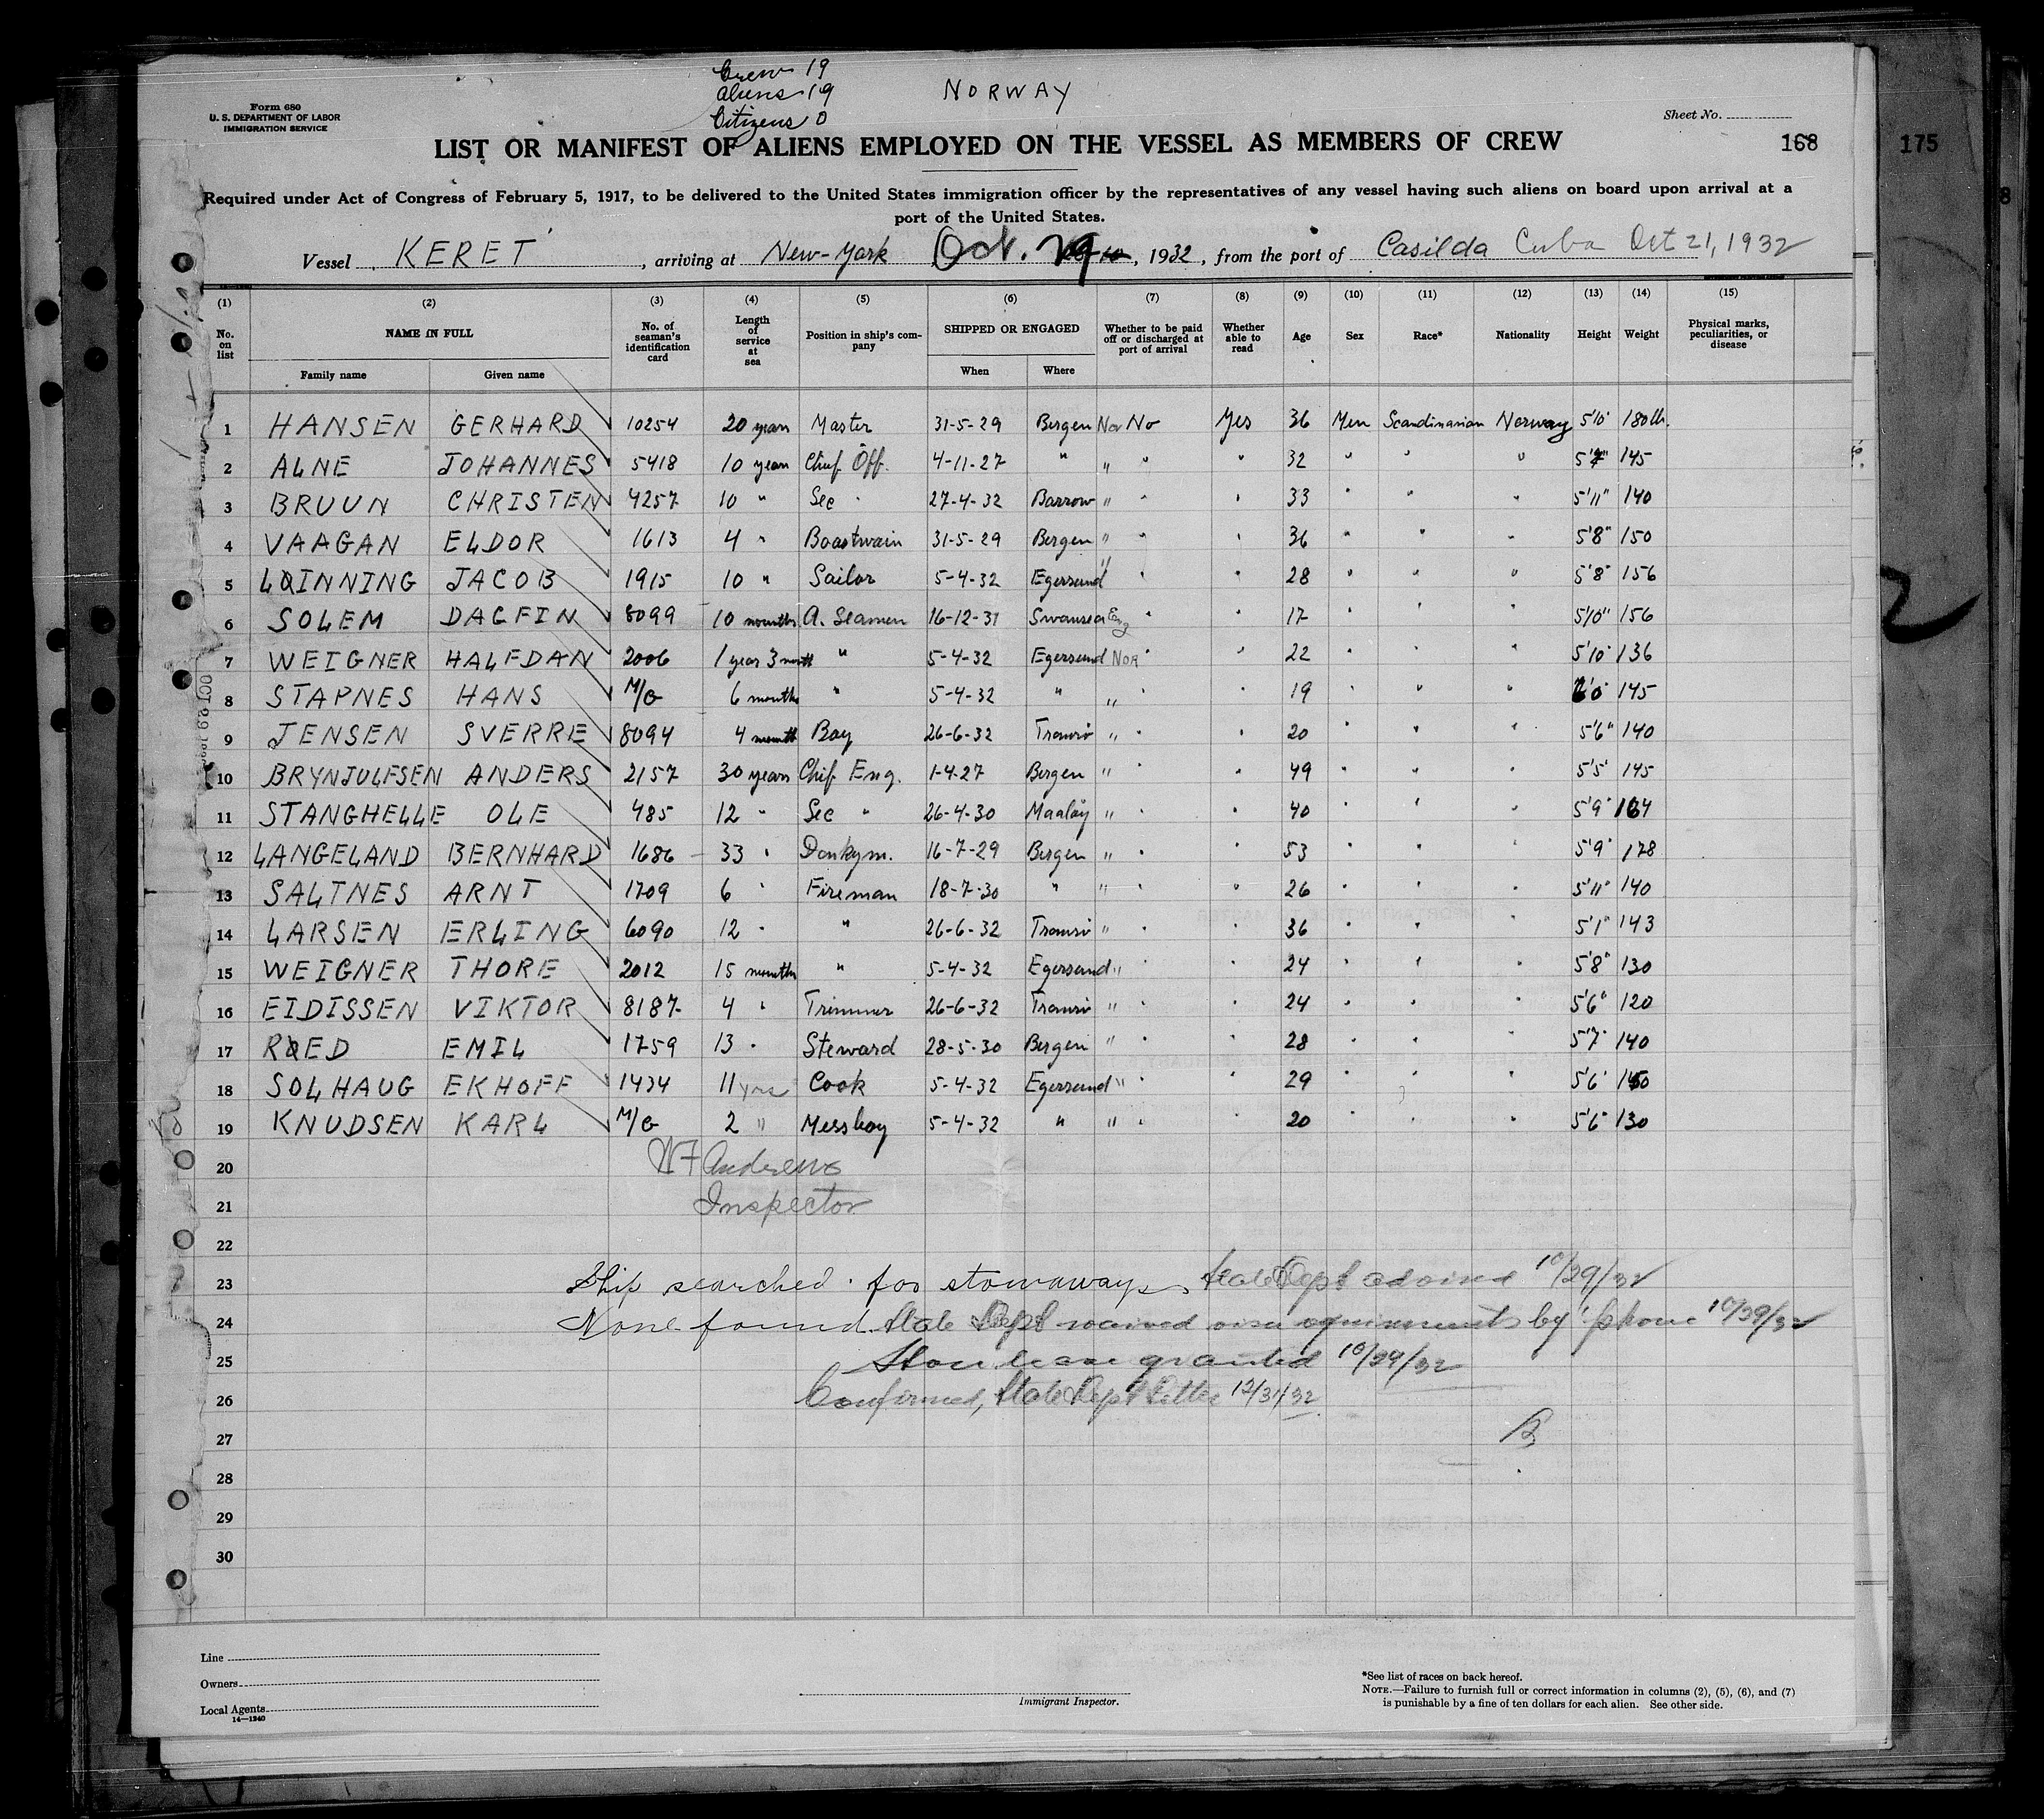 Crew 19
Aliens 19
Citizens 0
NORWAY
Form 680
U. S. DEPARTMENT OF LABOR
IMMIGRATION SERVICE
Sheet No.
LIST OR MANIFEST OF ALIENS EMPLOYED ON THE VESSEL AS MEMBERS OF CREW
168
175
Required under Act of Congress of February 5, 1917, to be delivered to the United States immigration officer by the representatives of any vessel having such aliens on board upon arrival at a
port of the United States.
Vessel KERET, arriving at New-York Oct. 29, 1932, from the port of Casilda Cuba Oct 21, 1932
(1) (2) (3) (4) (5) (6) (7) (8) (9) (10) (11) (12) (13) (14) (15)
No. on list NAME IN FULL No. of seaman's identification card Length of service at sea Position in ship's company SHIPPED OR ENGAGED Whether to be paid off or discharged at port of arrival Whether able to read Age Sex Race* Nationality Height Weight Physical marks, peculiarities, or disease
Family name Given name When Where
1 HANSEN GERHARD 10254 20 years Master 31-5-29 Bergen Nor No Yes 36 Men Scandinavian Norway 5'10" 180 lb.
2 ALNE JOHANNES 5418 10 years Chief Off. 4-11-27 " " " " 32 " " " 5'7" 145
3 BRUUN CHRISTEN 4257 10 " Sec " 27-4-32 Barrow " " " 33 " " " 5'11" 140
4 VAAGAN ELDOR 1613 4 " Boastwain 31-5-29 Bergen " " " 36 " " " 5'8" 150
5 LØINNING JACOB 1915 10 " Sailor 5-4-32 Egersund " " " 28 " " " 5'8" 156
6 SOLEM DAGFIN 8099 10 mounths A. Seamen 16-12-31 Swansea Eng " " 17 " " " 5'10" 156
7 WEIGNER HALFDAN 2006 1 year 3 month " 5-4-32 Egersund Nor " " 22 " " " 5'10" 136
8 STAPNES HANS M/G 6 mounths " 5-4-32 " " " 19 " " " 6'0" 145
9 JENSEN SVERRE 8094 4 mounth Boy 26-6-32 Tromsö " " " 20 " " " 5'6" 140
10 BRYNJULFSEN ANDERS 2157 30 years Chif Eng. 1-4-27 Bergen " " " 49 " " " 5'5" 145
11 STANGHELLE OLE 485 12 " Sec " 26-4-30 Maaløy " " " 40 " " " 5'9" 164
12 LANGELAND BERNHARD 1686 33 " Donkym. 16-7-29 Bergen " " " 53 " " " 5'9" 178
13 SALTNES ARNT 1709 6 " Fireman 18-7-30 " " " " 26 " " " 5'11" 140
14 LARSEN ERLING 6090 12 " " 26-6-32 Tromsö " " " 36 " " " 5'1" 143
15 WEIGNER THORE 2012 15 mounths " 5-4-32 Egersund " " " 24 " " " 5'8" 130
16 EIDISSEN VIKTOR 8187 4 " Trimmer 26-6-32 Tromsö " " " 24 " " " 5'6" 120
17 RØED EMIL 1759 13 " Steward 28-5-30 Bergen " " " 28 " " 5'7" 140
18 SOLHAUG EKHOFF 1434 11 yrs Cook 5-4-32 Egersund " " " 29 " " " 5'6" 150
19 KNUDSEN KARL M/G 2 " Messboy 5-4-32 " " " " 20 " " " 5'6" 130
20 Andrews
21 Inspector
22
23 Ship searched for stowaways State Dept advised 10/29/32
24 None found. State Dept waived visa requirements by 'phone
25 Shore leave granted 10/29/32
26 Confirmed, State Dept Letter 12/31/32
27
28
29
30
OCT 29
Line
Owners
Local Agents
14—1240
Immigrant Inspector.
*See list of races on back hereof.
NOTE.—Failure to furnish full or correct information in columns (2), (5), (6), and (7)
is punishable by a fine of ten dollars for each alien. See other side.